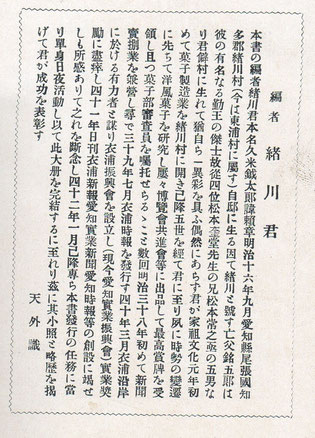 編者　緒川君
本書の編者緒川君本名久米鉞太郎諱頼章明治十六年九月愛知縣尾張國知
多郡緒川村(今は東浦村に屬す)自邸に生る因て緒川と號す亡父銘五郎は
彼の有名なる勤王の傑士故從四位松本奎堂先生の兄松本常之亟の五男な
り君僻村に生れて猶自ら一異彩を具ふ偶然にあらず君が家祖文化元年初
めて菓子製造業を緒川村に開き已降五世を經て君に至り夙に時勢の變遷
に先ちて洋風菓子を研究し屢々博覽會共進會等に出品して最高賞牌を受
領し且つ菓子部審査員を囑托せらるゝこと數回明治三十八年初めて新聞
賣捌業を兼營し尋で三十九年七月衣浦時報を發行す四十年三月衣浦沿岸
に於ける有力者と謀り衣浦振興會を設立し(現今愛知實業振興會)實業獎
勵に盡瘁し四十一年日刊衣浦新報愛知實業新聞愛知時報等の創設に竭せ
しも所感ありて之れを斷念し四十二年一月已降專ら本書發行の任務に當
り單身日夜活動し以て此大册を完結するに至れり茲に其小照と略歷を揭
げて君が成功を表彰す
天外識